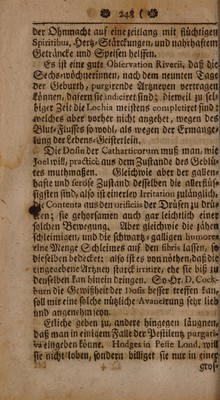 248
der Ohnmacht auf eine zeitlang mit flüchtigen
Spiritibus, Hertz-Stärckungen, und nahrhafftem
Getråncke und Speisen helffen.
Es ist eine gute Observation Riverii, daß die
Sechs-wöchnerinnen, nach dem neunten Tage
der Geburth, purgirende Artzneyen vertragen
können, daferne sie indiciret sind; dieweil zu sel-
biger Zeit die Lochia meistens completiret sind;
welches aber vorher nicht angehet, wegen des
Blut-Flusses so wohl, als wegen der Ermange-
lung der Lebens-Geisterlein.
Die Dosin der Catharticorum muß man, wie
Joel will, practice aus dem Zustande des Geblü-
tes muthmaßen. Gleichwie aber der gallen-
haffte und seröse Zustand desselben die allerflüs-
sigsten sind, also ist einerley Irritation zulänglich,
die Contenta aus den orificiis der Drüsen zu drü-
cken; sie gehorsamen auch gar leichtlich einer
solchen Bewegung. Aber gleichwie die zähen
schleimigen, und die schwartz-galligen humores
eine Menge Schleimes auf den fibris lassen, so
dieselben bedecket; also ist es von nöthen, daß die
eingegebene Artzney starck irritire, ehe sie biß zu
denselben kan hinein dringen. So Dr. D. Cock-
burn die Gewißheit der Dosis besser treffen kan,
soll mir eine solche nützliche Avancirung sehr lieb
und angenehm seyn.
Etliche geben zu, andere hingegen läugnen,
daß man in einigem Falle der Pestilentz purgati-
va eingeben könne. Hodges in Peste Lond. will
sie nicht loben, sondern billiget sie nur in einer
gros-